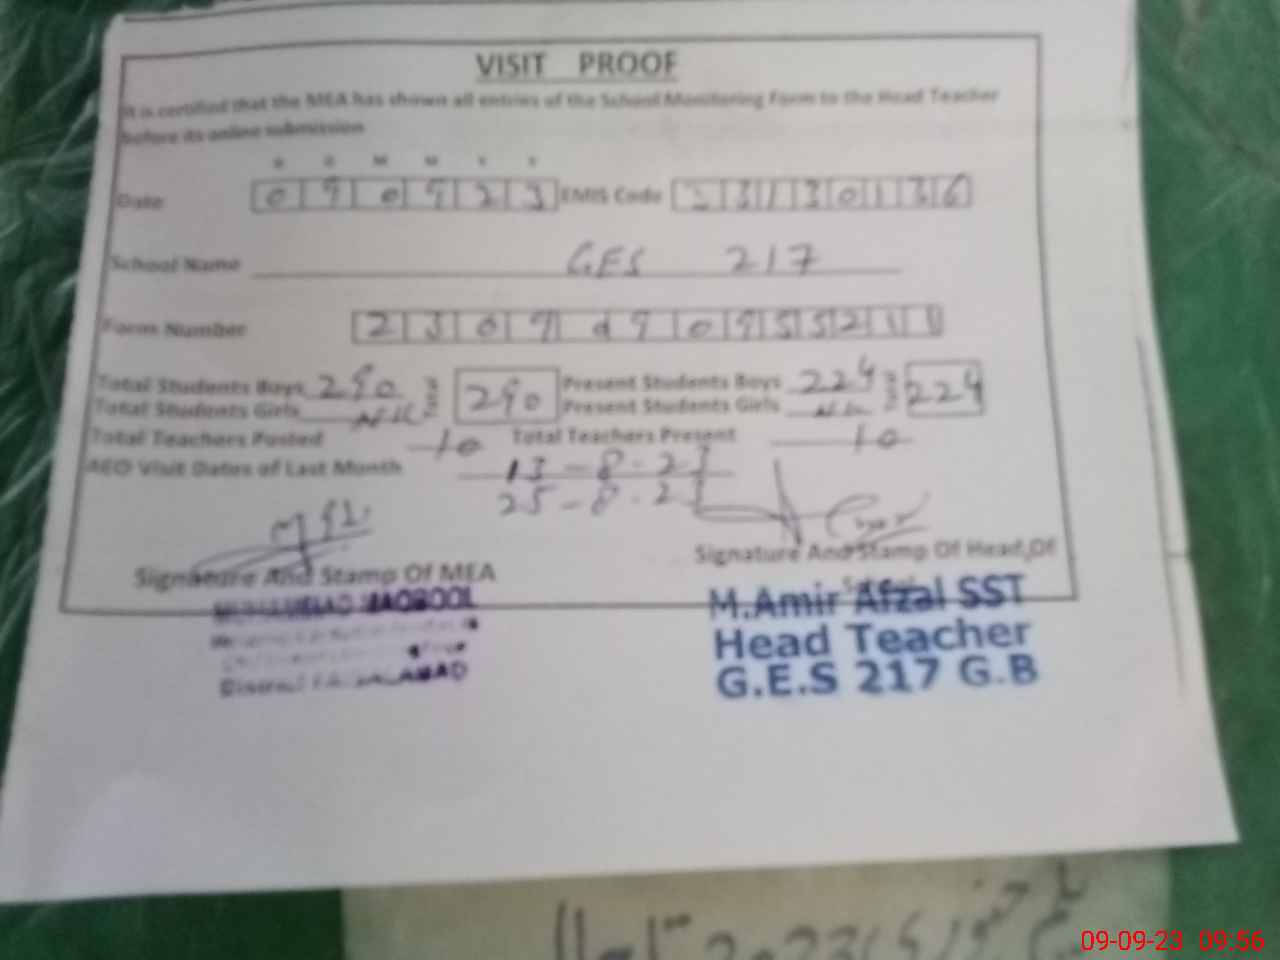 VISIT PROOF
It is certified that the MEA has shown all entries of the School Monitoring Form to the Head Teacher
before its online submission
D D M M Y Y
Date 0 9 0 9 2 3 EMIS Code 3 3 1 3 0 1 3 6
School Name GES 217
Form Number 2 3 0 9 0 9 0 9 5 5 2 1 1
Total Students Boys 290 290 Present Students Boys 224 224
Total Students Girls Nil Present Students Girls Nil
Total Teachers Posted 10 Total Teachers Present 10
AEO Visit Dates of Last Month 13-8-23
25-8-23
Signature And Stamp Of MEA Signature And Stamp Of Head Of
MUHAMMAD MAQBOOL
District FAISALABAD
M.Amir Afzal SST
Head Teacher
G.E.S 217 G.B
09-09-23 09:56